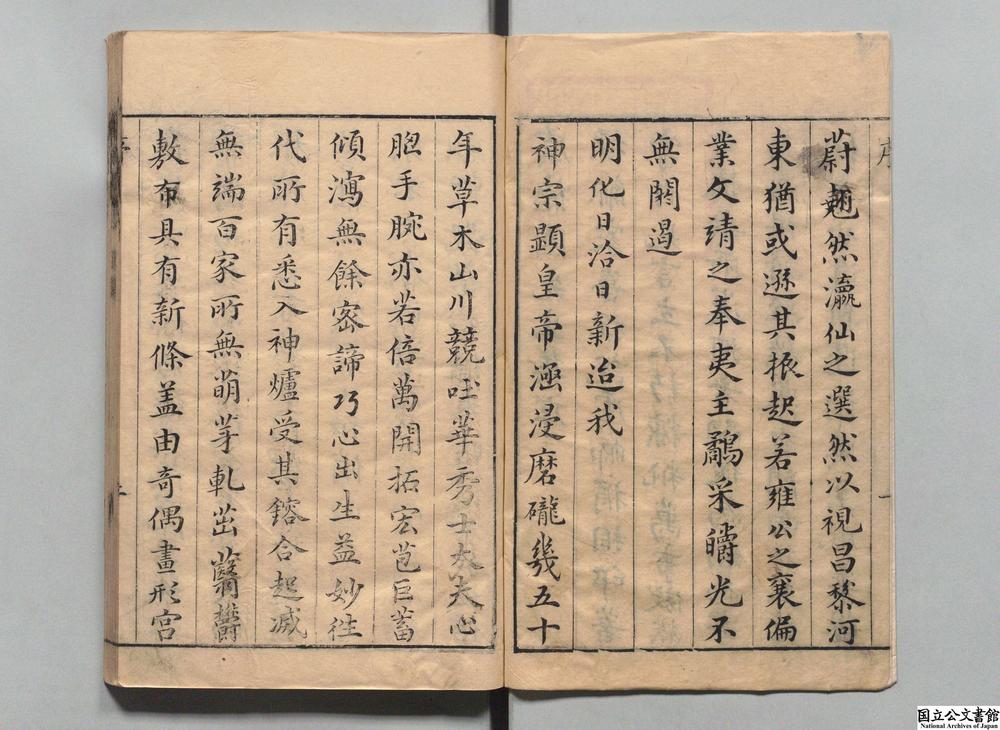 序
蔚翹然瀛仙之選然以視昌黎河
東猶或遜其振起若雍公之襄偏
業文靖之奉夷主鷸采皭光不
無閼遏
明化日洽日新迨我
神宗顯皇帝涵浸磨礲幾五十
年草木山川競吐華秀士大夫心
胆手腕亦若倍萬開拓宏苞巨蓄
傾瀉無餘密諦巧心出生益妙往
代所有悉入神爐受其鎔合起滅
無端百家所無萌芽軋茁蘙薈
敷布具有新條盖由奇偶畫形宮
国立公文書館
National Archives of Japan